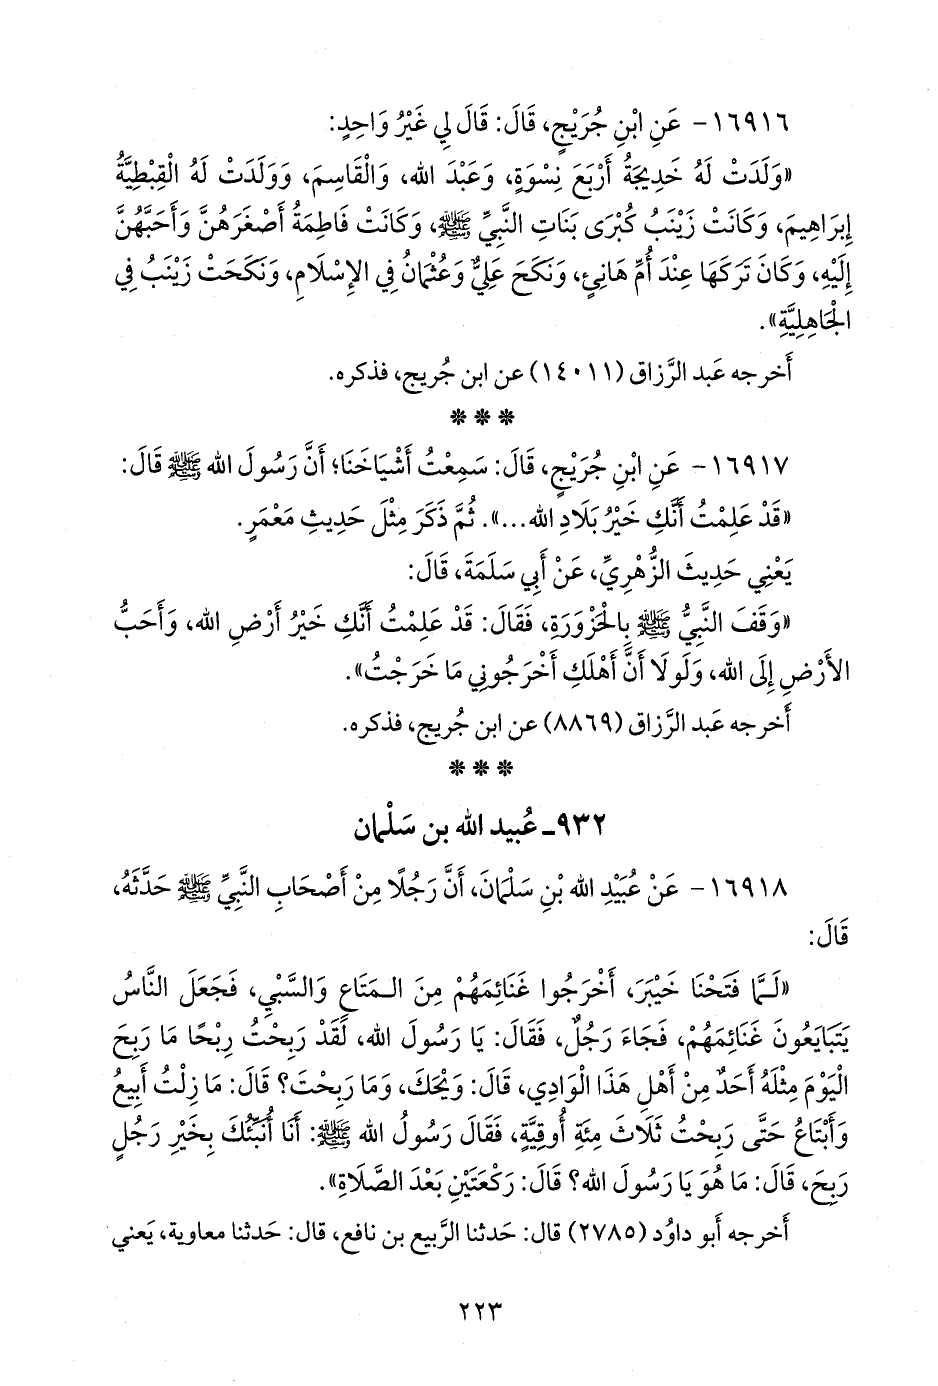 ١٦٩١٦- عَنِ ابْنِ جُرَيْجٍ، قَالَ: قَالَ لِي غَيْرُ وَاحِدٍ:
«وَلَدَتْ لَهُ خَدِيجَةُ أَرْبَعَ نِسْوَةٍ، وَعَبْدَ الله، وَالْقَاسِمَ، وَوَلَدَتْ لَهُ الْقِبْطِيَّةُ
إِبرَاهِيمَ، وَكَانَتْ زَيْنَبُ كُبْرَى بَنَاتِ النَّبِيِّ ﷺ، وَكَانَتْ فَاطِمَةُ أَصْغَرَهُنَّ وَأَحَبَّهُنَّ
إِلَيْهِ، وَكَانَ تَرَكَهَا عِنْدَ أُمِّ هَانِئٍ، وَنَكَحَ عَلِيٌّ وَعُثْمَانُ فِي الإِسْلَامِ، وَنَكَحَتْ زَيْنَبُ فِي
الْجَاهِلِيَّةِ».
أَخرجه عَبد الرَّزاق (١٤٠١١) عن ابن جُريج، فذكره.
***
١٦٩١٧- عَنِ ابْنِ جُرَيْجٍ، قَالَ: سَمِعْتُ أَشْيَاخَنَا؛ أَنَّ رَسُولَ الله ﷺ قَالَ:
«قَدْ عَلِمْتُ أَنَّكِ خَيْرُ بَلَادِ الله...». ثُمَّ ذَكَرَ مِثْلَ حَدِيثِ مَعْمَرٍ.
يَعْنِي حَدِيثَ الزُّهْرِيِّ، عَنْ أَبِي سَلَمَةَ، قَالَ:
«وَقَفَ النَّبِيُّ ﷺ بِالْحَزْوَرَةِ، فَقَالَ: قَدْ عَلِمْتُ أَنَّكِ خَيْرُ أَرْضِ الله، وَأَحَبُّ
الأَرْضِ إِلَى الله، وَلَولَا أَنَّ أَهْلَكِ أَخْرَجُونِي مَا خَرَجْتُ».
أَخرجه عَبد الرَّزاق (٨٨٦٩) عن ابن جُريج، فذكره.
***
٩٣٢ـ عُبيد الله بن سَلْمان
١٦٩١٨- عَنْ عُبَيْدِ الله بْنِ سَلْمَانَ، أَنَّ رَجُلًا مِنْ أَصْحَابِ النَّبِيِّ ﷺ حَدَّثَهُ،
قَالَ:
«لَـمَّا فَتَحْنَا خَيْبَرَ، أَخْرَجُوا غَنَائِمَهُمْ مِنَ الـمَتَاعِ وَالسَّبْيِ، فَجَعَلَ النَّاسُ
يَتَبَايَعُونَ غَنَائِمَهُمْ، فَجَاءَ رَجُلٌ، فَقَالَ: يَا رَسُولَ الله، لَقَدْ رَبِحْتُ رِبْحًا مَا رَبِحَ
الْيَوْمَ مِثْلَهُ أَحَدٌ مِنْ أَهْلِ هَذَا الْوَادِي، قَالَ: وَيْحَكَ، وَمَا رَبِحْتَ؟ قَالَ: مَا زِلْتُ أَبِيعُ
وَأَبْتَاعُ حَتَّى رَبِحْتُ ثَلَاثَ مِئَةِ أُوقِيَّةٍ، فَقَالَ رَسُولُ الله ﷺ: أَنَا أُنَبِّئُكَ بِخَيْرِ رَجُلٍ
رَبِحَ، قَالَ: مَا هُوَ يَا رَسُولَ الله؟ قَالَ: رَكْعَتَيْنِ بَعْدَ الصَّلَاةِ».
أَخرجه أَبو داوُد (٢٧٨٥) قال: حَدثنا الرَّبيع بن نافع، قال: حَدثنا معاوية، يَعني
٢٢٣